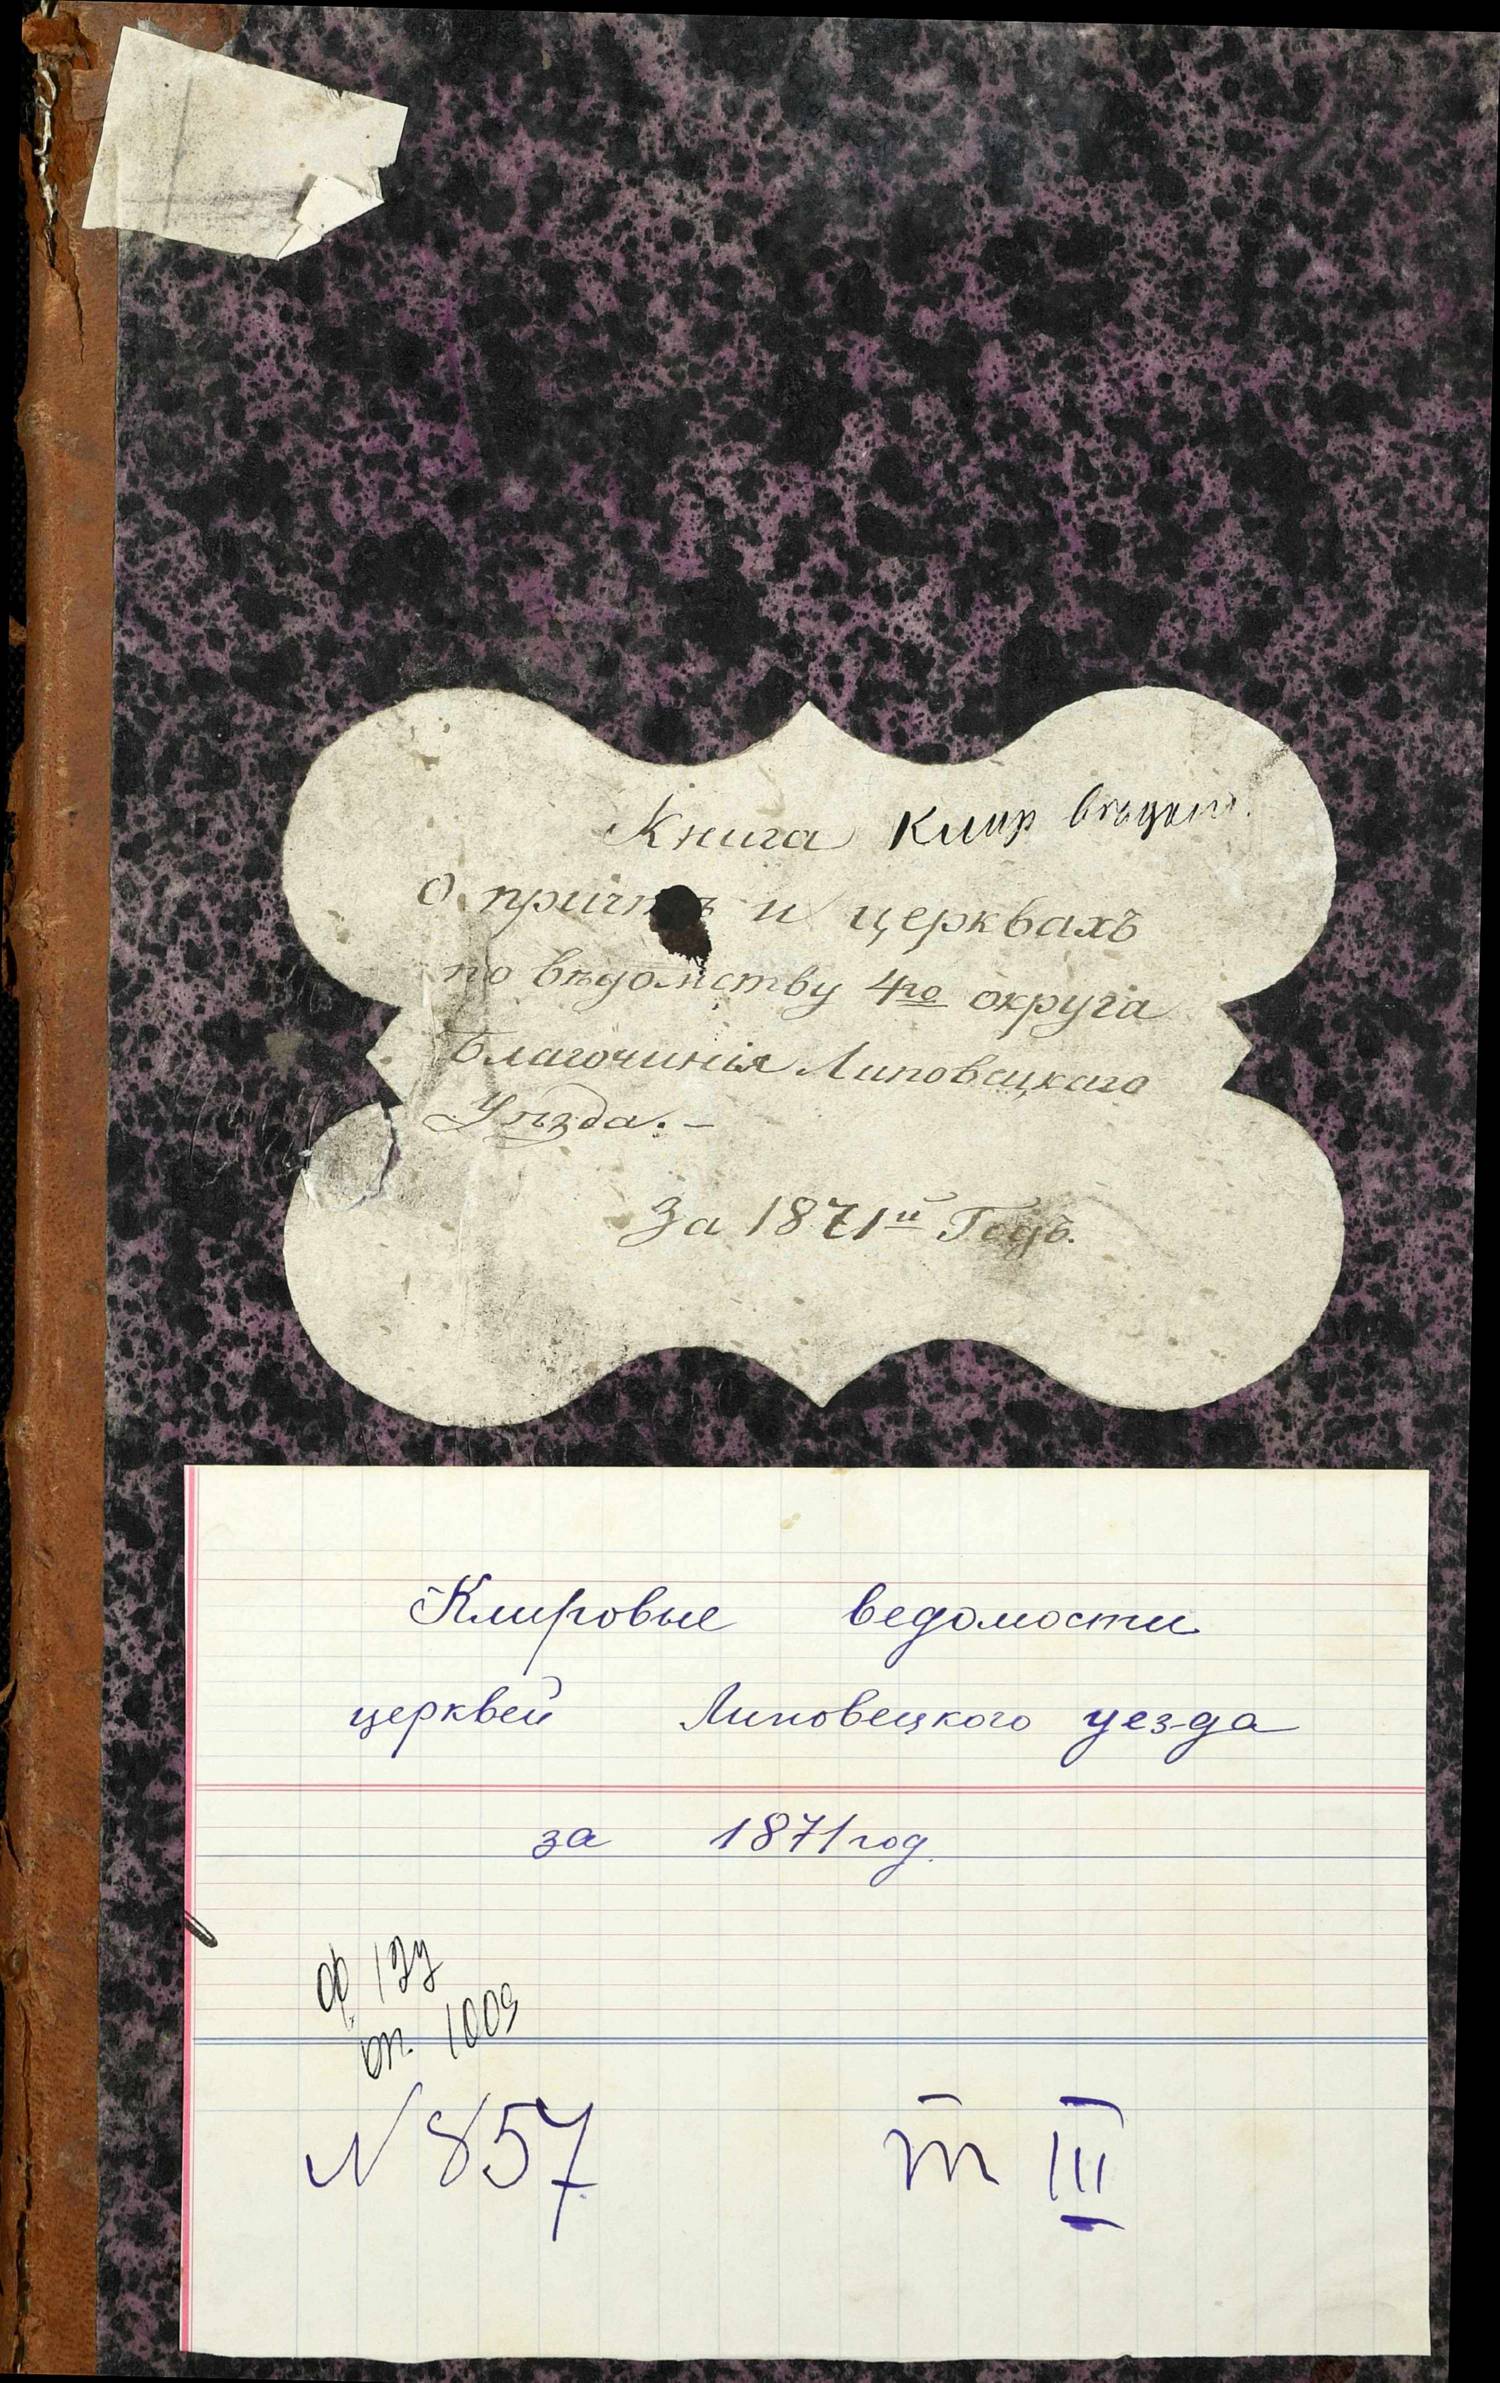 Книга Клир вѣдом.
О причтѣ и церквахъ
по вѣдомству 4го округа
Благочинія Липовецкаго
Уѣзда. –
За 1871й Годъ.
Клировые ведомости
церквей Липовецкого уезда
за 1871 год.
ф 127
оп. 1009
№ 857 т III